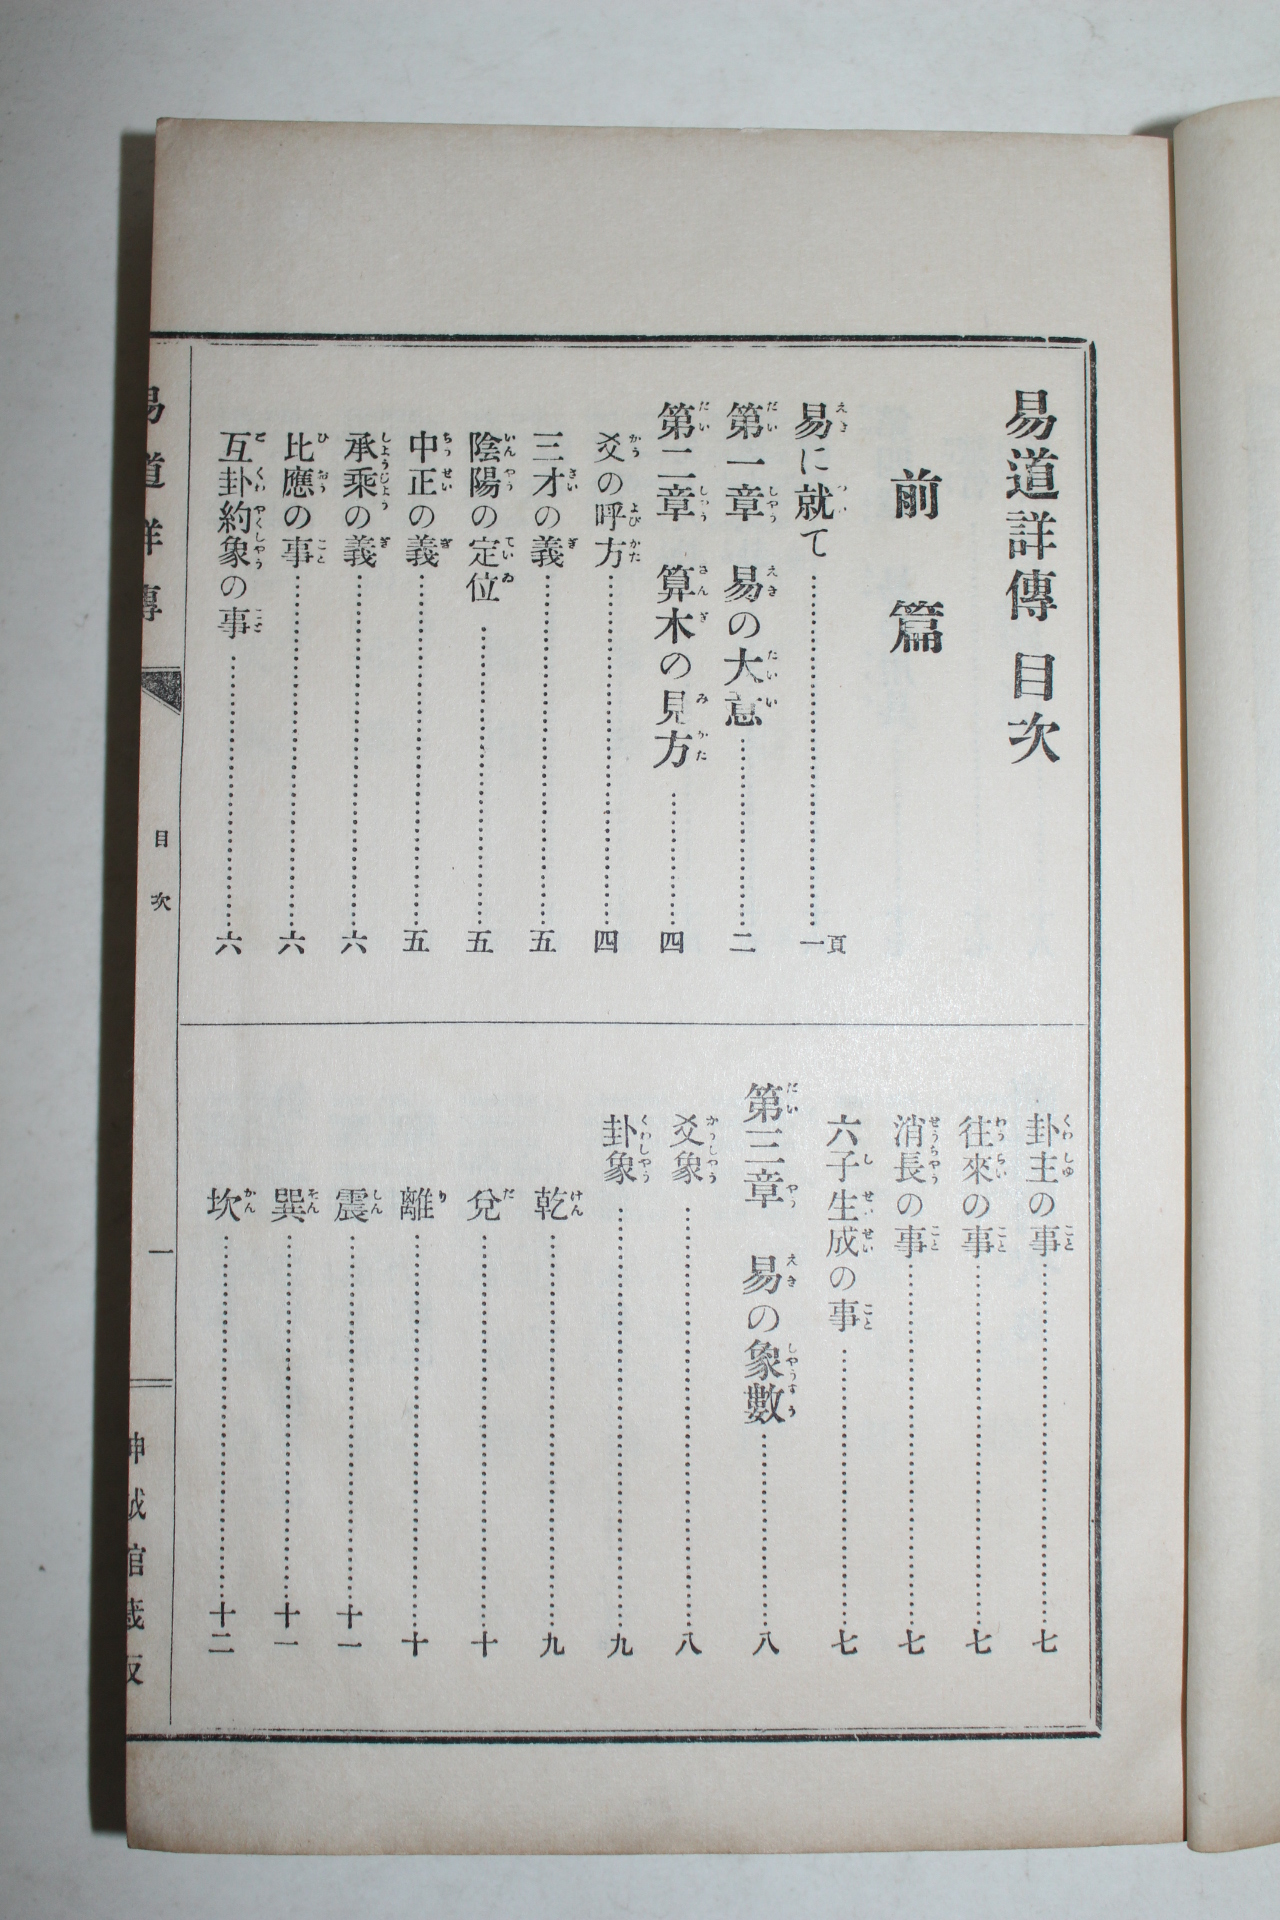 易道詳傳 目次
前篇
易に就て……一頁
第一章 易の大意……二
第二章 算木の見方……四
爻の呼方……四
三才の義……五
陰陽の定位……五
中正の義……五
承乘の義……六
比應の事……六
互卦約象の事……六
卦主の事……七
往來の事……七
消長の事……七
六子生成の事……七
第三章 易の象數……八
爻象……八
卦象……九
乾……九
兌……十
離……十
震……十一
巽……十一
坎……十二
易道詳傳
目次
一
館藏